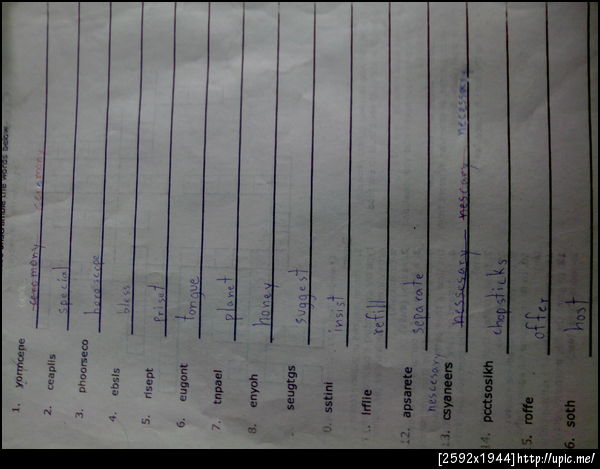 the words below.
1. yormcepe ceromony ceromony
2. ceaplis special
3. phoorseco horoscope
4. ebsls bless
5. risept priset
6. eugont tongue
7. tnpael planet
8. enyoh honey
seugtgs suggest
0. sstini insist
lrflie refill
2. apsarete separate
3. csyaneers nessesary nescary necessary
4. pcctsosikh chopsticks
5. roffe offer
6. soth host
[2592x1944]http://upic.me/